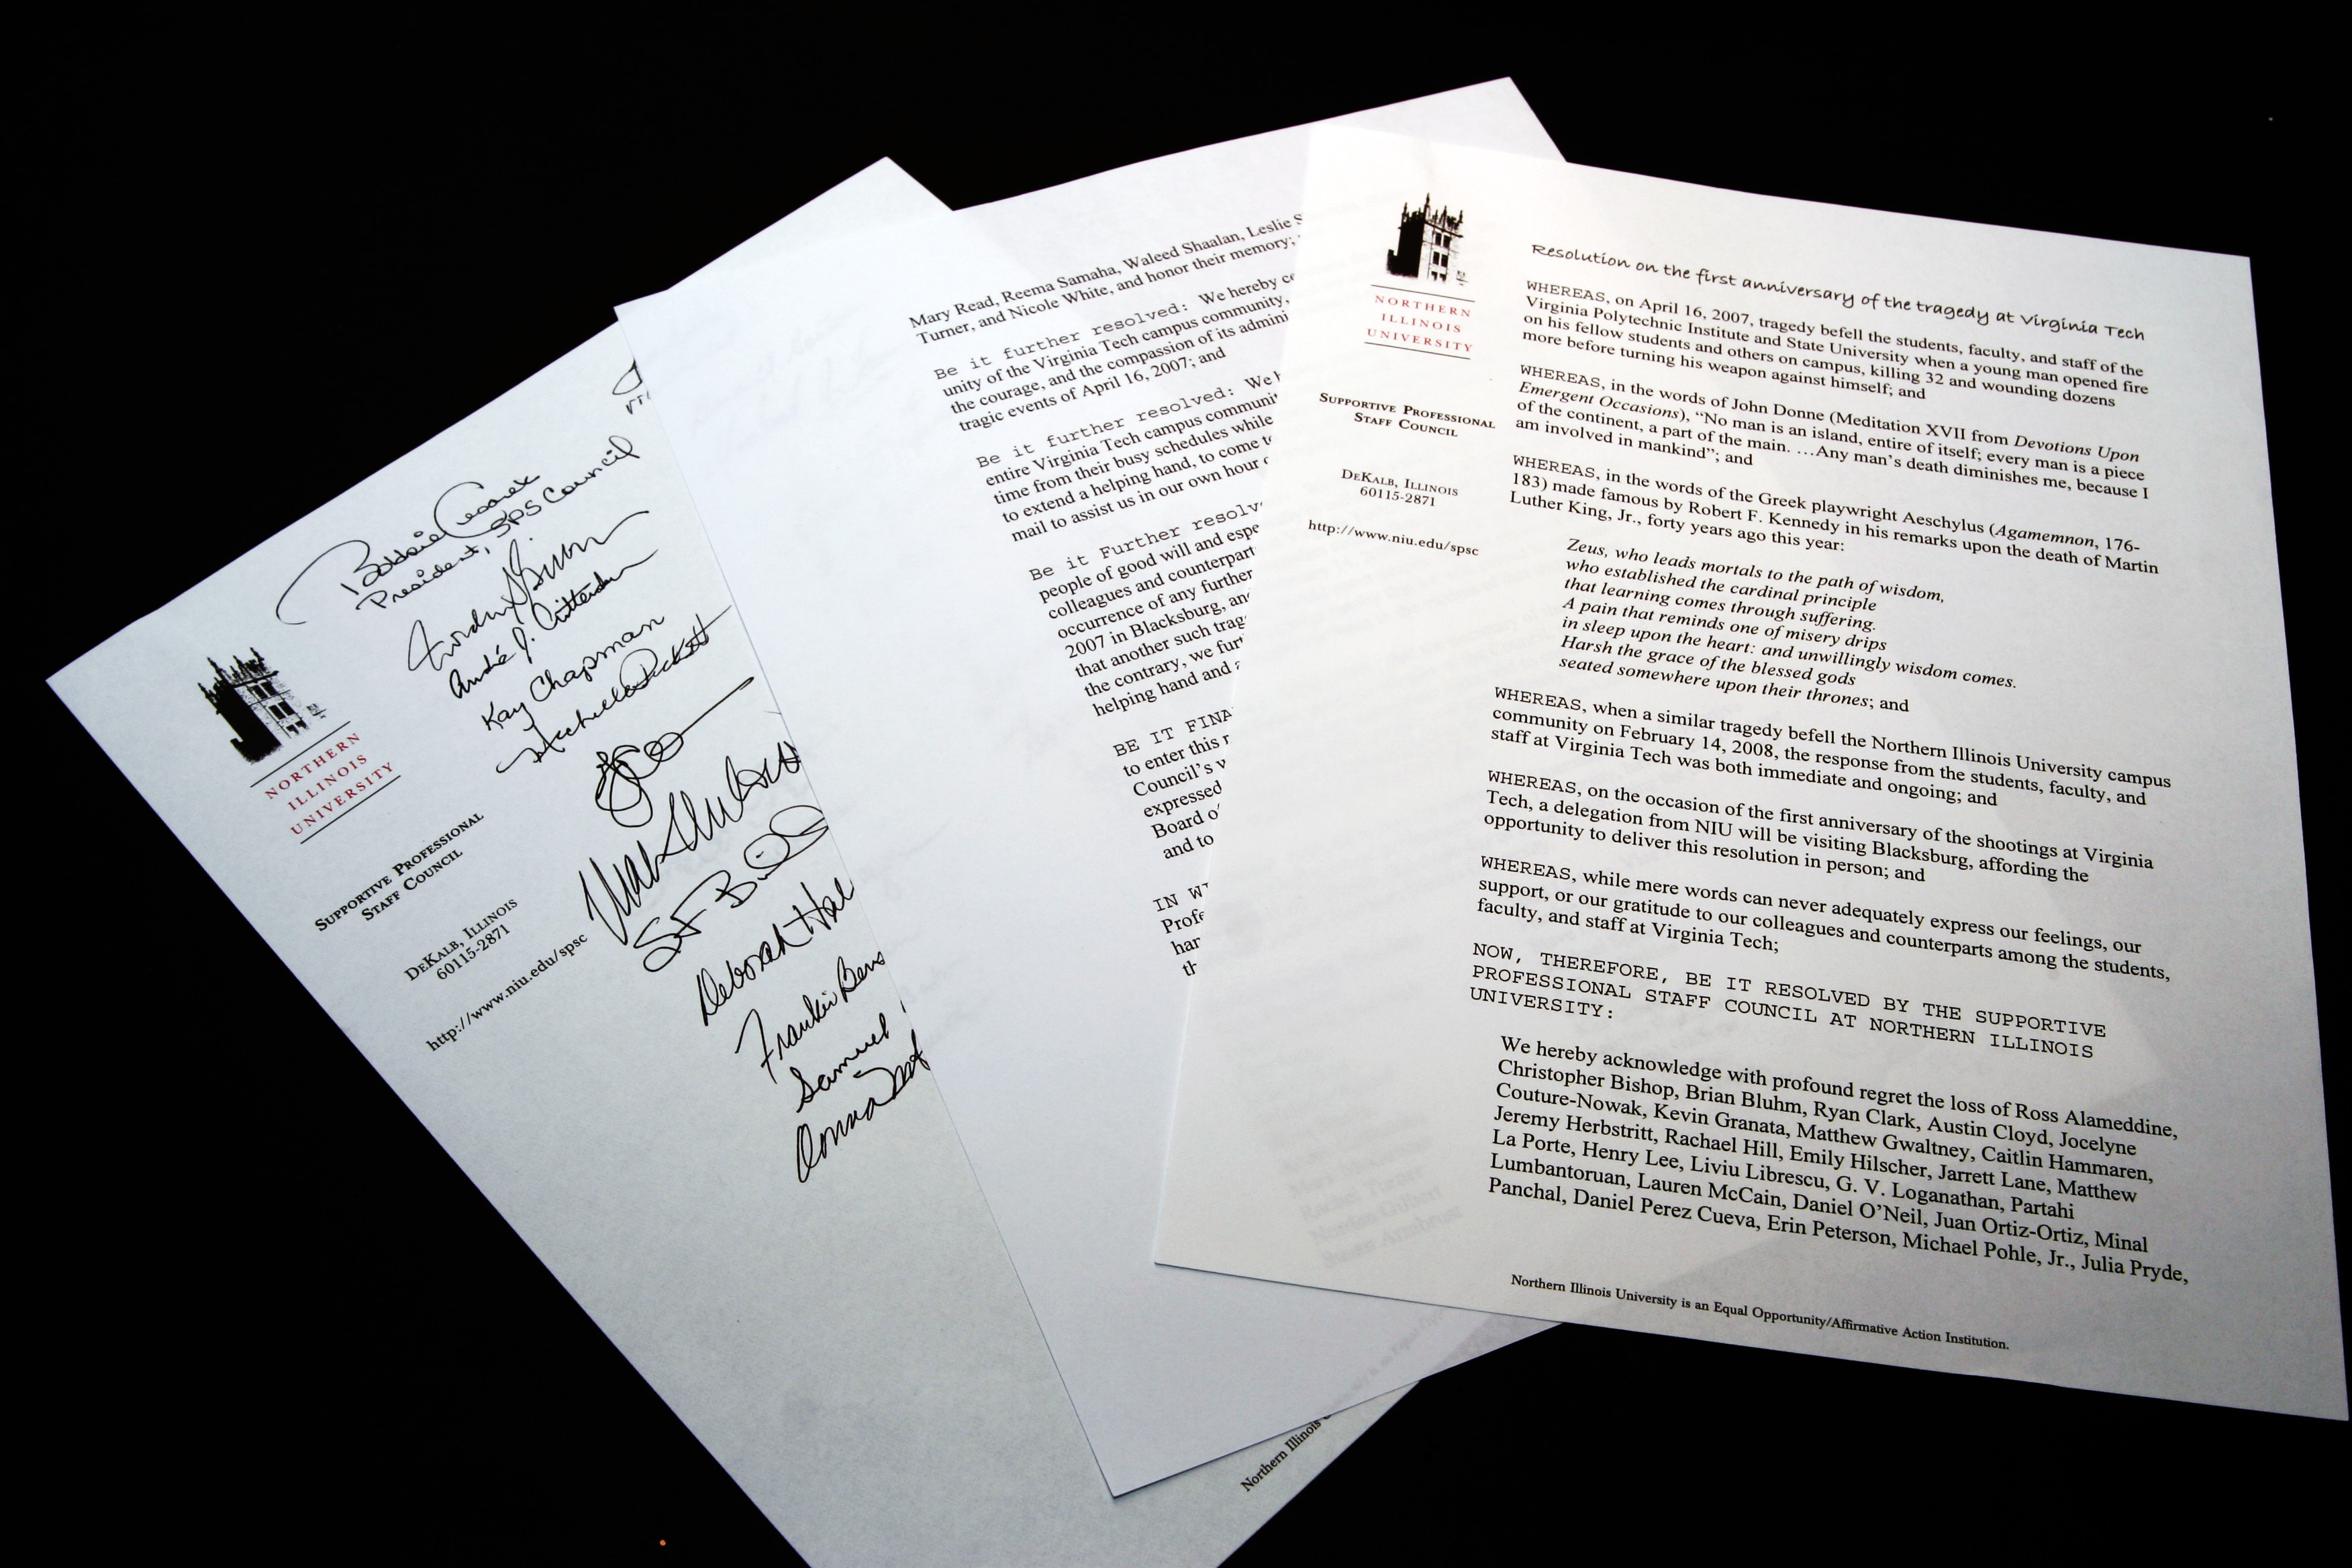 NORTHERN
ILLINOIS
UNIVERSITY
SUPPORTIVE PROFESSIONAL
STAFF COUNCIL
DEKALB, ILLINOIS
60115-2871
http://www.niu.edu/spsc
Resolution on the first anniversary of the tragedy at Virginia Tech
WHEREAS, on April 16, 2007, tragedy befell the students, faculty, and staff of the
Virginia Polytechnic Institute and State University when a young man opened fire
on his fellow students and others on campus, killing 32 and wounding dozens
more before turning his weapon against himself; and
WHEREAS, in the words of John Donne (Meditation XVII from Devotions Upon
Emergent Occasions), “No man is an island, entire of itself; every man is a piece
of the continent, a part of the main. …Any man’s death diminishes me, because I
am involved in mankind”; and
WHEREAS, in the words of the Greek playwright Aeschylus (Agamemnon, 176-
183) made famous by Robert F. Kennedy in his remarks upon the death of Martin
Luther King, Jr., forty years ago this year:
Zeus, who leads mortals to the path of wisdom,
who established the cardinal principle
that learning comes through suffering.
A pain that reminds one of misery drips
in sleep upon the heart: and unwillingly wisdom comes.
Harsh the grace of the blessed gods
seated somewhere upon their thrones; and
WHEREAS, when a similar tragedy befell the Northern Illinois University campus
community on February 14, 2008, the response from the students, faculty, and
staff at Virginia Tech was both immediate and ongoing; and
WHEREAS, on the occasion of the first anniversary of the shootings at Virginia
Tech, a delegation from NIU will be visiting Blacksburg, affording the
opportunity to deliver this resolution in person; and
WHEREAS, while mere words can never adequately express our feelings, our
support, or our gratitude to our colleagues and counterparts among the students,
faculty, and staff at Virginia Tech;
NOW, THEREFORE, BE IT RESOLVED BY THE SUPPORTIVE
PROFESSIONAL STAFF COUNCIL AT NORTHERN ILLINOIS
UNIVERSITY:
We hereby acknowledge with profound regret the loss of Ross Alameddine,
Christopher Bishop, Brian Bluhm, Ryan Clark, Austin Cloyd, Jocelyne
Couture-Nowak, Kevin Granata, Matthew Gwaltney, Caitlin Hammaren,
Jeremy Herbstritt, Rachael Hill, Emily Hilscher, Jarrett Lane, Matthew
La Porte, Henry Lee, Liviu Librescu, G. V. Loganathan, Partahi
Lumbantoruan, Lauren McCain, Daniel O’Neil, Juan Ortiz-Ortiz, Minal
Panchal, Daniel Perez Cueva, Erin Peterson, Michael Pohle, Jr., Julia Pryde,
Northern Illinois University is an Equal Opportunity/Affirmative Action Institution.
Mary Read, Reema Samaha, Waleed Shaalan, Leslie S
Turner, and Nicole White, and honor their memory;
Be it further resolved: We hereby c
unity of the Virginia Tech campus community,
the courage, and the compassion of its admini
tragic events of April 16, 2007; and
Be it further resolved: We h
entire Virginia Tech campus communi
time from their busy schedules while
to extend a helping hand, to come to
mail to assist us in our own hour
Be it Further resolv
people of good will and espe
colleagues and counterpart
occurrence of any further
2007 in Blacksburg, an
that another such trag
the contrary, we fur
helping hand and
BE IT FINA
to enter this
Council’s
expressed
Board o
and to
IN W
Profe
har
th
Bobbie Cesarek
President, SPS Council
André J. Crittenden
Kay Chapman
Michelle Pickett
Deborah Hae
Frankie Bens
Samuel
Donna
NORTHERN
ILLINOIS
UNIVERSITY
SUPPORTIVE PROFESSIONAL
STAFF COUNCIL
DEKALB, ILLINOIS
60115-2871
http://www.niu.edu/spsc
Northern Illinois